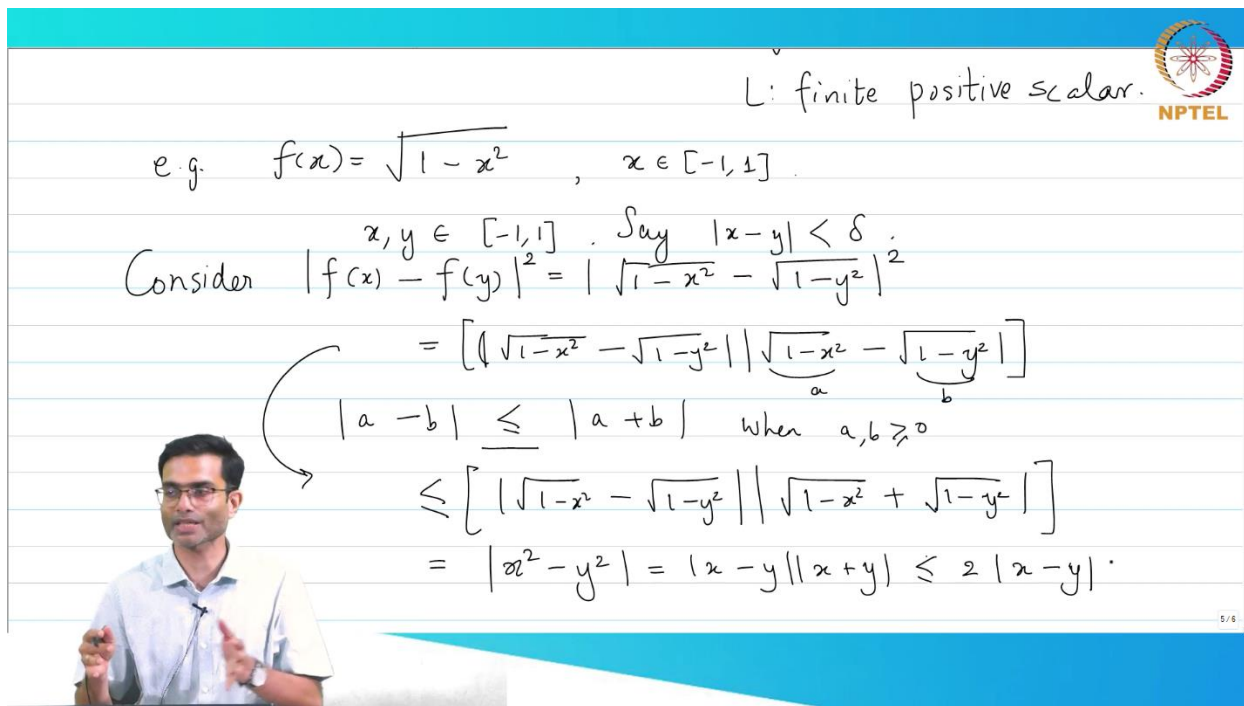 L: finite positive scalar.
NPTEL
e.g. f(x) = √(1 - x²) , x ∈ [-1, 1] .
x, y ∈ [-1, 1] . Say |x - y| < δ .
Consider |f(x) - f(y)|² = |√(1 - x²) - √(1 - y²)|²
= [|√(1 - x²) - √(1 - y²)| |√(1 - x²) - √(1 - y²)|]
a b
|a - b| ≤ |a + b| when a, b ≥ 0
≤ [|√(1 - x²) - √(1 - y²)| |√(1 - x²) + √(1 - y²)|]
= |x² - y²| = |x - y||x + y| ≤ 2 |x - y| .
5/6